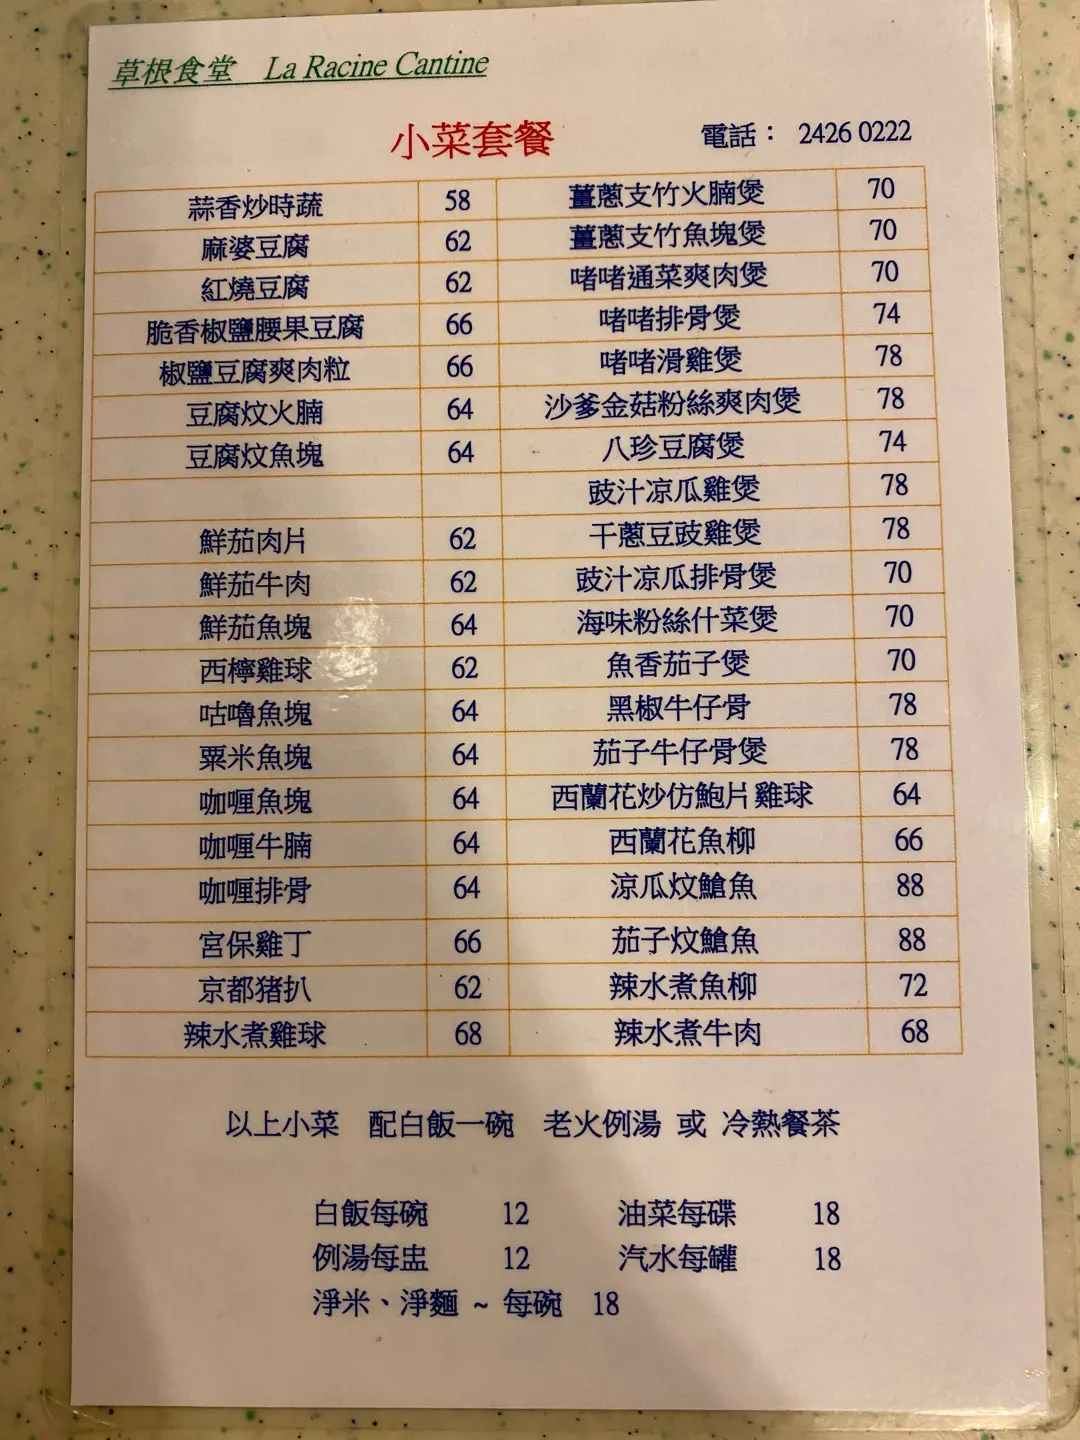 草根食堂 La Racine Cantine
小菜套餐 電話： 2426 0222
蒜香炒時蔬 58 薑蔥支竹火腩煲 70
麻婆豆腐 62 薑蔥支竹魚塊煲 70
紅燒豆腐 62 啫啫通菜爽肉煲 70
脆香椒鹽腰果豆腐 66 啫啫排骨煲 74
椒鹽豆腐爽肉粒 66 啫啫滑雞煲 78
豆腐炆火腩 64 沙爹金菇粉絲爽肉煲 78
豆腐炆魚塊 64 八珍豆腐煲 74
豉汁凉瓜雞煲 78
鮮茄肉片 62 干蔥豆豉雞煲 78
鮮茄牛肉 62 豉汁凉瓜排骨煲 70
鮮茄魚塊 64 海味粉絲什菜煲 70
西檸雞球 62 魚香茄子煲 70
咕嚕魚塊 64 黑椒牛仔骨 78
粟米魚塊 64 茄子牛仔骨煲 78
咖喱魚塊 64 西蘭花炒仿鮑片雞球 64
咖喱牛腩 64 西蘭花魚柳 66
咖喱排骨 64 涼瓜炆鱠魚 88
宮保雞丁 66 茄子炆鱠魚 88
京都猪扒 62 辣水煮魚柳 72
辣水煮雞球 68 辣水煮牛肉 68
以上小菜 配白飯一碗 老火例湯 或 冷熱餐茶
白飯每碗 12 油菜每碟 18
例湯每盅 12 汽水每罐 18
淨米、淨麵 ~ 每碗 18